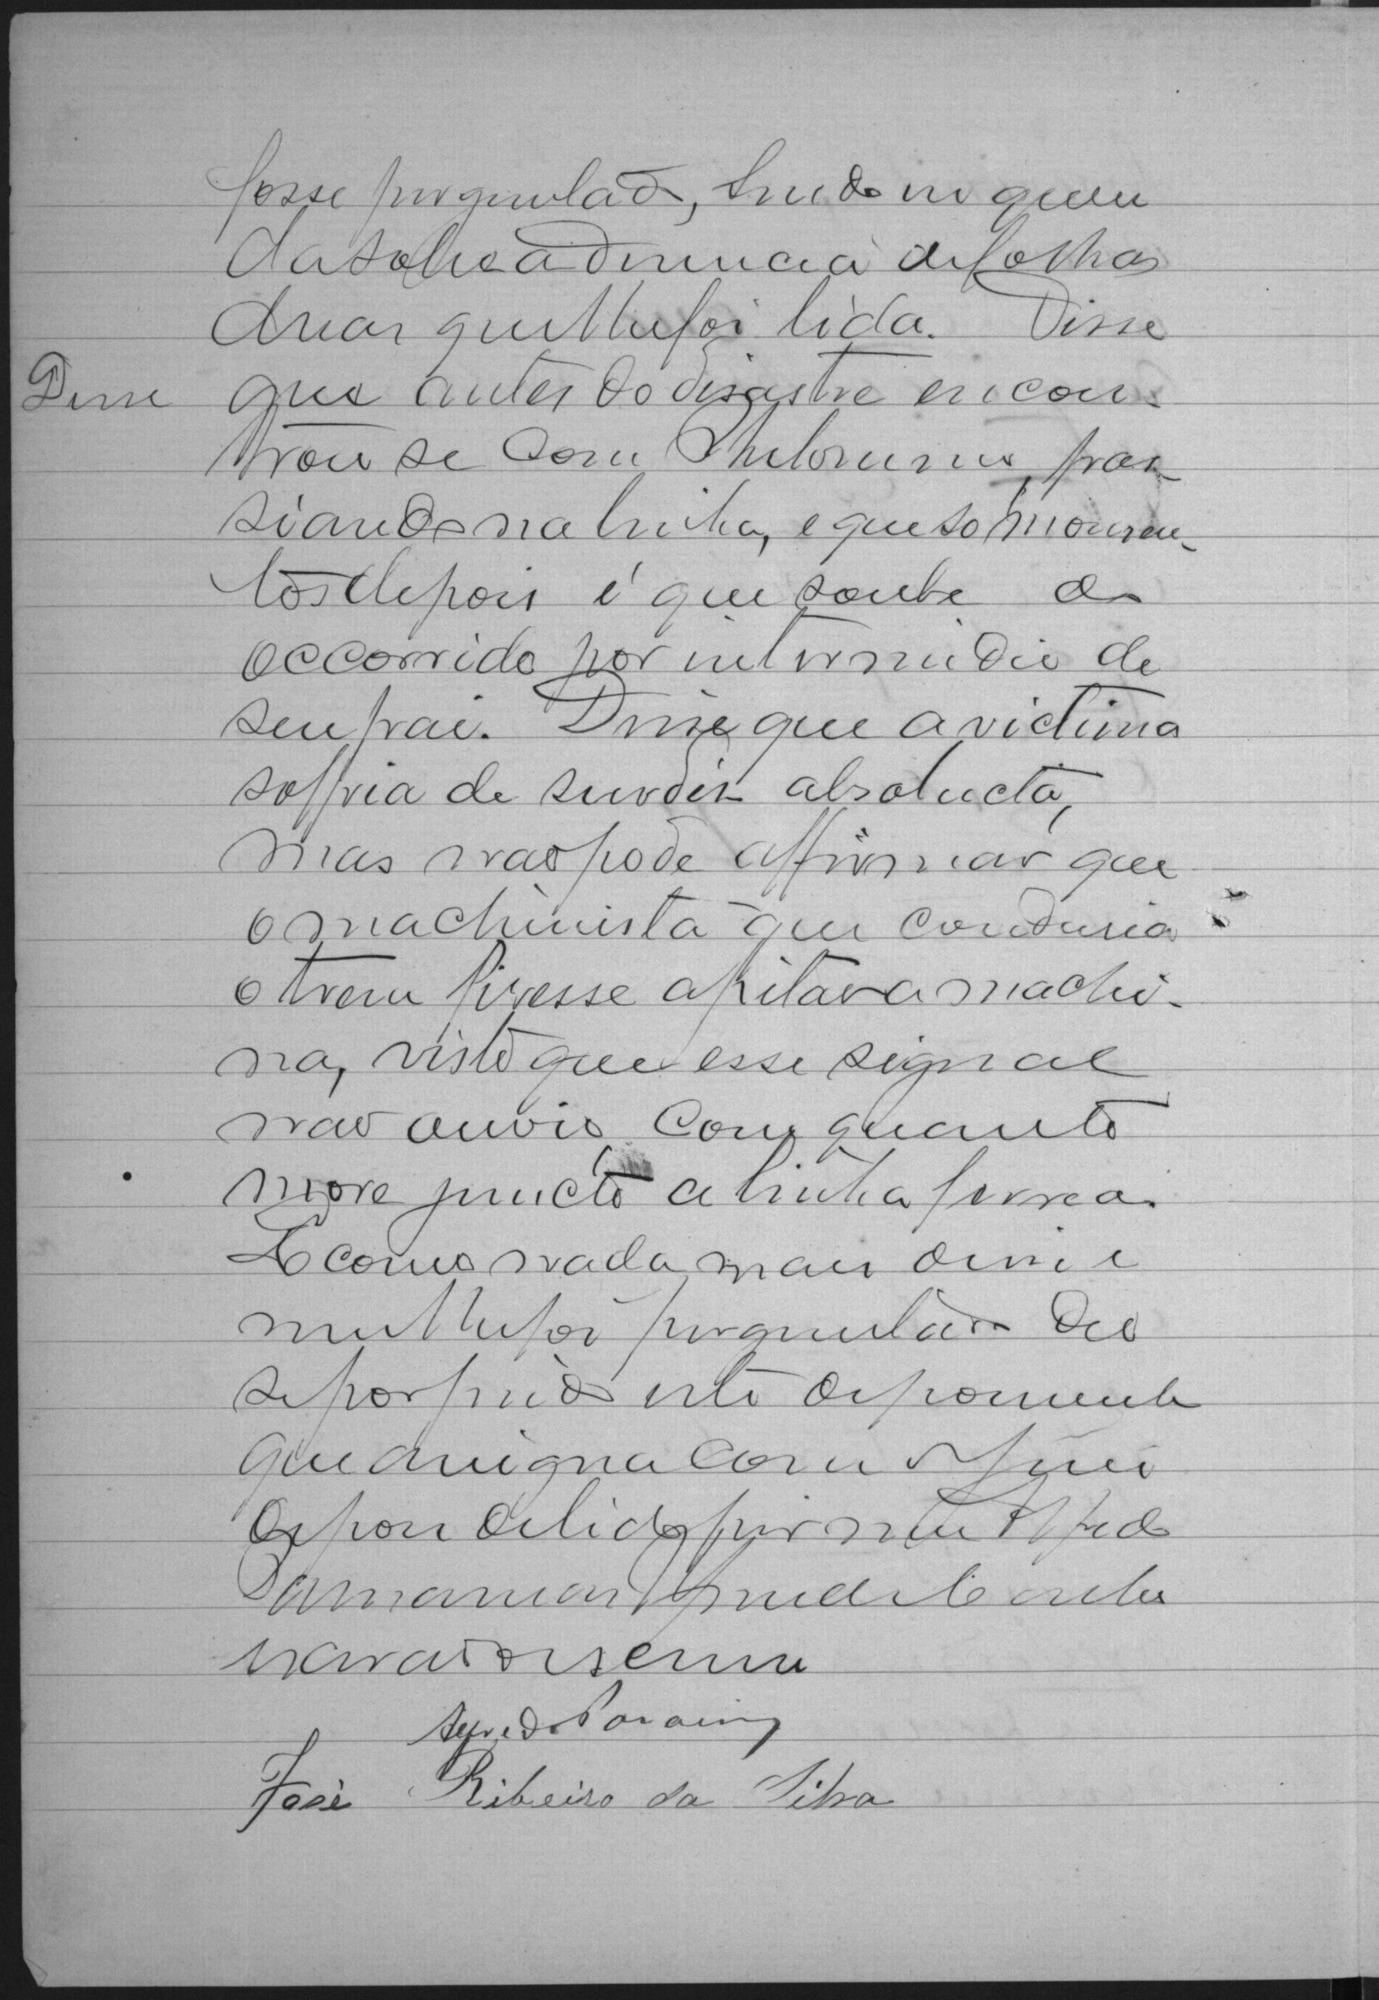 fosse perguntado, sendo inqueri
da sobre a denuncia de folhas
duas que lhe foi lida. Disse
Disse que antes do desastre encon-
trou se com Philomeno, pas-
siando na linha, e que so momen-
tos depois é que soube do
occorrido por intermedio de
seu pai. Disse que a victima
soffria de surdez absolucta,
mas não pode affirmar que
o machinista que condusia
o trem fizesse apitar a machi-
na, visto que esse signal
não ouvio com quanto
more juncto a linha ferrea.
E como nada mais disse e
nem lhe foi perguntado deu
se por findo este depoimento
que assigna com o Juiz
depois de lido por mim Alfredo
escrivão o escrevi
Alfredo
José Ribeiro da Silva